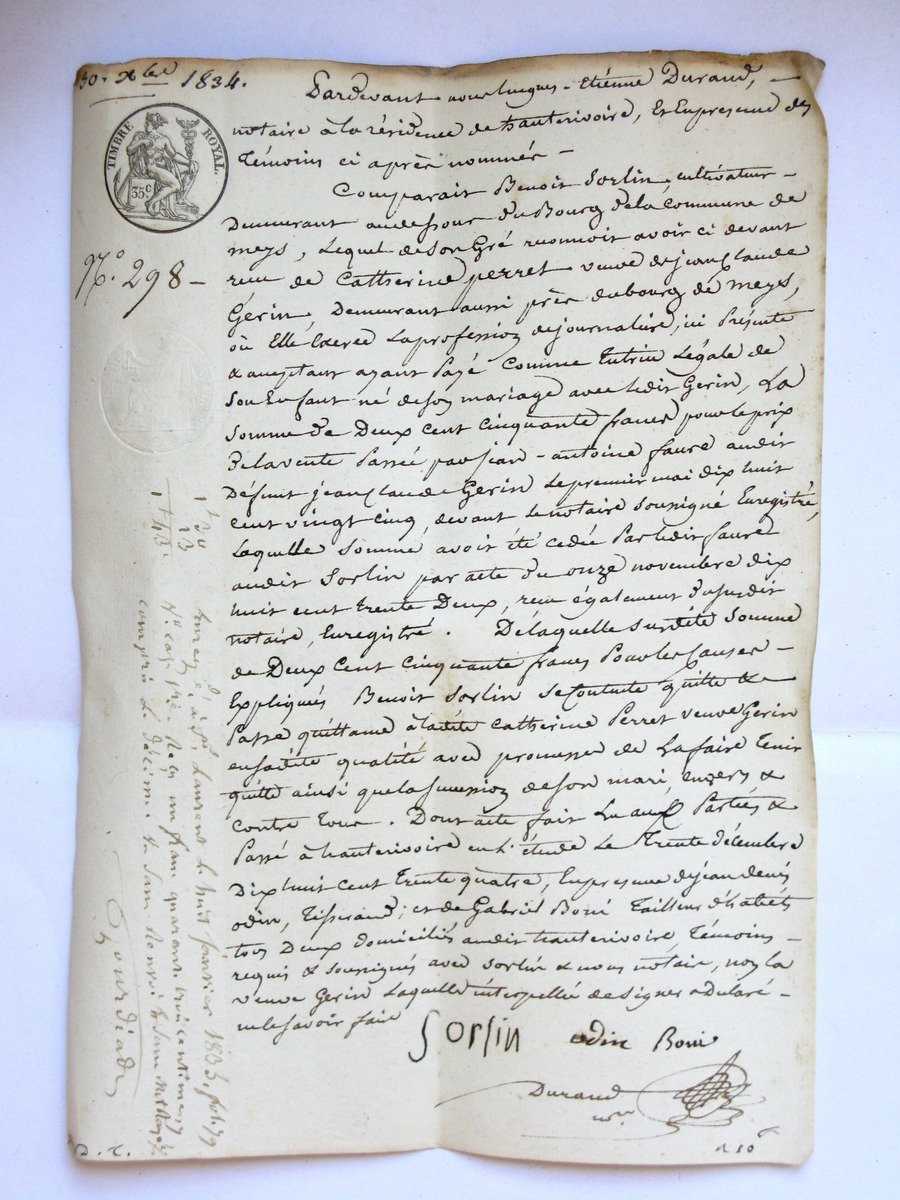 30. Xbre 1834.
TIMBRE ROYAL.
35 c
No. 298 -
Pardevant nous Etienne Durand, -
notaire à la résidence de hauterivoire, Et En presence des
Témoins ci après nommés -
Comparait Benoit Sorlin, cultivateur -
Demeurant au dessous du Bourg de la commune de
meys, Lequel de son Gré reconnoit avoir ci devant
recu de Catherine perret veuve de jean claude
Gerin, Demeurant aussi près du bourg de meys,
où Elle Exerce La profession de journalière, ici Présente
& acceptant ayant Payé Comme tutrice Légale de
Son Enfant né de son mariage avec ledit Gerin, La
Somme de Deux cent cinquante francs pour le prix
de la vente Passée par jean - antoine faure audit
Défunt jean claude Gerin Le premier mai dix huit
cent vingt cinq, devant Le notaire Soussigné Enregistré,
Laquelle Somme avoir été cedée Par ledit faure
audit Sorlin par acte du onze novembre dix
huit cent trente Deux, recu également du susdit
notaire, Enregistré. De laquelle susdite Somme
de Deux Cent Cinquante francs Pour les Causes -
Expliqués Benoit Sorlin Se Contente quitte &
Passe quittance à ladite Catherine Perret veuve Gerin
en sadite qualité avec promesse de La faire tenir
quitte ainsi que la succession de son mari, envers &
contre tous. Dont acte fait Lu aux Parties &
Passé à hauterivoire en L'étude Le Trente décembre
Dix huit cent trente quatre, En presence de jean denis
odin, Tisserand; et de Gabriel Boni Tailleur d'habits
tous Deux domiciliés audit hauterivoire Témoins -
requis & soussignés avec Sorlin & nous notaire, non la
veuve Gerin Laquelle interpellée de signer a declaré -
ne le savoir faire
Sorlin odin Boni
Durand
nre
à St Laurent le huit janvier 1835, fol. 79
un franc quarante trois centimes
compris le décime